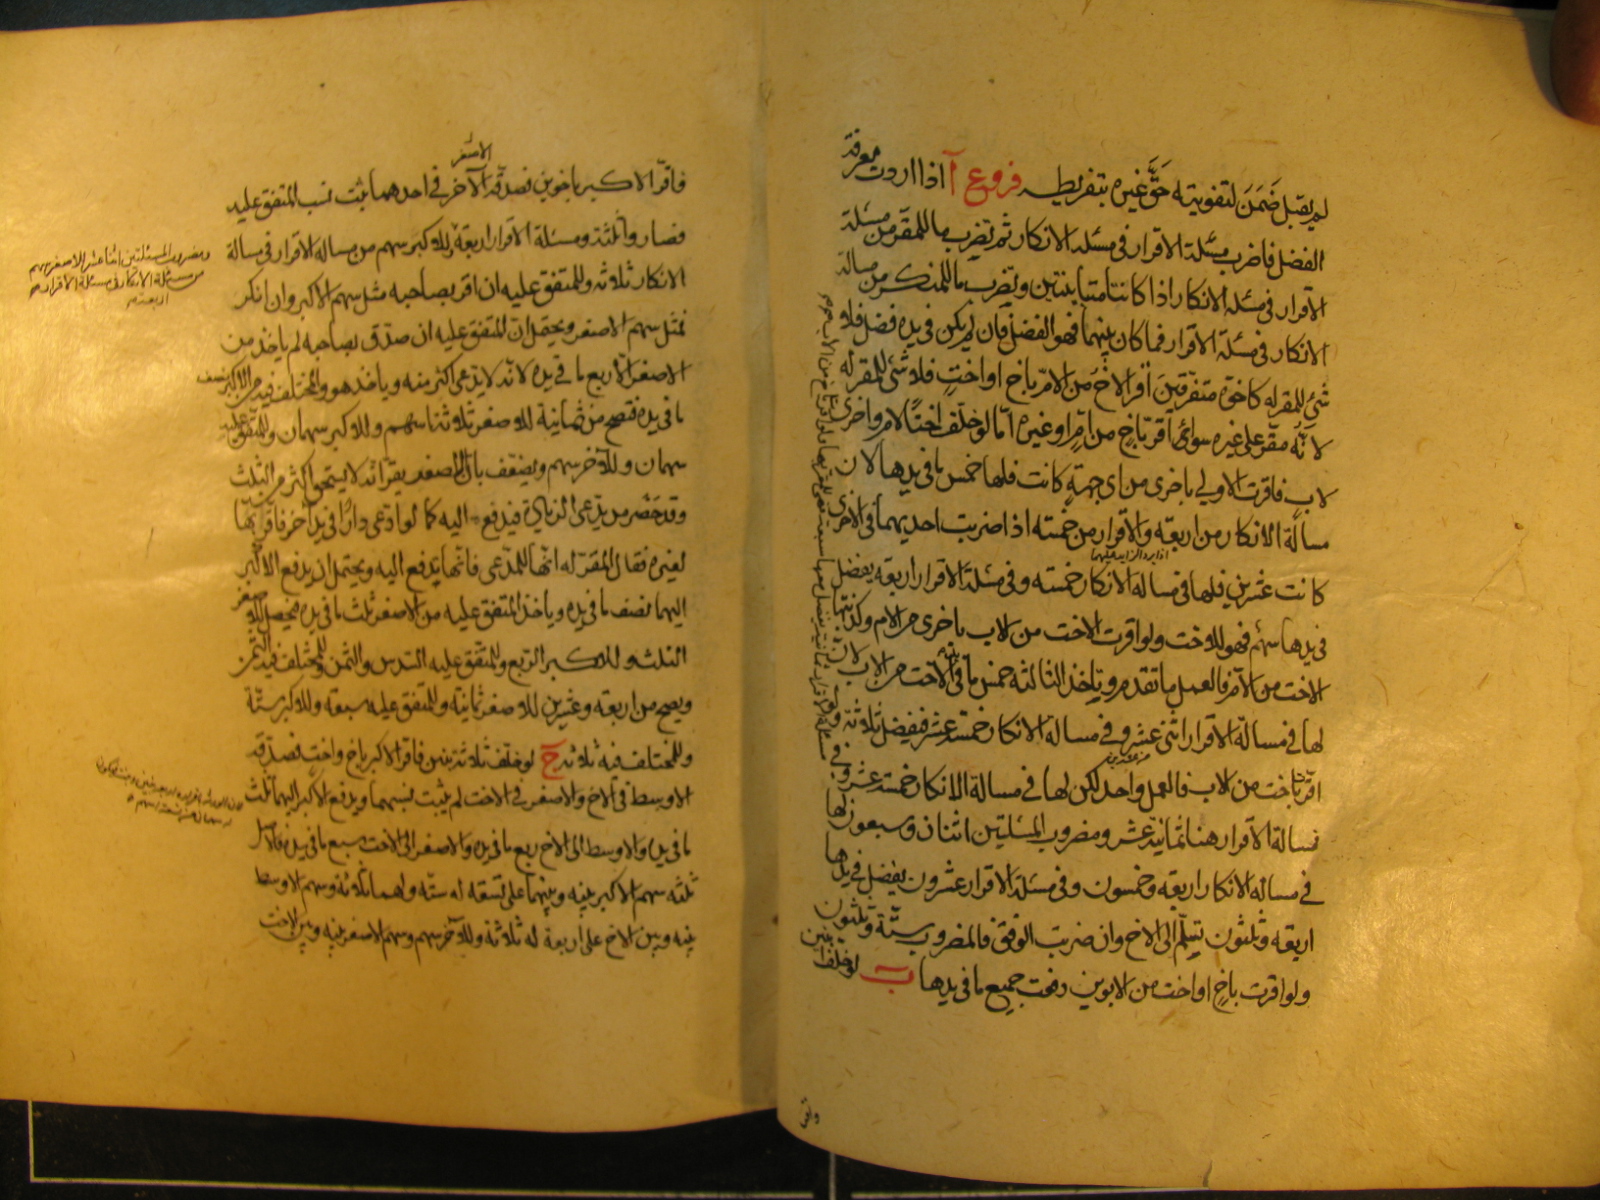 لم يقبل ضمن لتفويته حق غيره بتفريطه فروع آ اذا اردت معرفة
الفضل فاضرب مسئلة الاقرار في مسئلة الانكار ثم تضرب ما للمقر من مسئلة
الاقرار في مسئلة الانكار اذا كانتا متباينتين وتضرب ما للمنكر من مسالة
الانكار في مسئلة الاقرار فما كان بينهما فهو الفضل فان لم يكن في يده فضل فلا
شئ للمقر له كاخوة متفرقين اقر الاخ من الام باخ او اخت فلا شئ للمقر له
لانه مقر على غيره سواء اقر باخ من ام او غيره اما لو خلف اختا لام واخرى
لاب فاقرت الاولى باخرى من اى جهة كانت فلها خمس ما في يدها لان
مسالة الانكار من اربعة والاقرار من خمسة اذا ضربت احديهما في الاخرى
كانت عشرين فلها في مسالة الانكار خمسة وفي مسئلة الاقرار اربعة يفضل
في يدها سهم فهو للاخت ولو اقرت الاخت من الاب باخرى من الام وكذبتها
الاخت من الام فالعمل ما تقدم وتاخذ الثالثة خمس ما في يد الاخت من الاب لان
لها في مسالة الاقرار اثنى عشر وفي مسالة الانكار خمسة عشر فيفضل ثلاثة ولو
اقرت باخت من الاب فالعمل واحد لكن لها في مسالة الانكار خمسة عشر وفي
مسالة الاقرار هنا ثمانية عشر ومضروب المسئلتين اثنان وسبعون لها
في مسالة الانكار اربعة وخمسون وفي مسئلة الاقرار عشرون يفضل في يدها
اربعة وثلثون تسلم الى الاخ وان ضربت الوفق فالمضروب ستة وثلثون
ولو اقرت باخ او اخت من الابوين دفعت جميع ما في يدها ب لو خلف ابنين
فاقر الاكبر باخوين فصدقه الاخر في احدهما ثبت نسب المتفق عليه
الاصغر
فصاروا ثلثة ومسئلة الاقرار اربعة وللاكبر سهم من مسالة الاقرار في مسالة
الانكار ثلاثة وللمتفق عليه ان اقر بصاحبه مثل سهم الاكبر وان انكر
فمثل سهم الاصغر ويحتمل ان المتفق عليه ان صدق بصاحبه لم ياخذ من
الاصغر الا ربع ما في يده لانه لا يدعى اكثر منه وياخذ هو والمختلف فيه من الاكبر نصف
ما في يده فتصح من ثمانية للاصغر ثلاثة اسهم وللاكبر سهمان وللمتفق عليه
سهمان وللاخر سهم ويضعف بان الاصغر يقر انه لا يستحق اكثر من الثلث
وقد حضر من يدعى الزيادة فيدفع اليه كما لو ادعى دارا في يد اخر فاقر بها
لغيره فقال المقر له انها للمدعى فانها تدفع اليه ويحتمل ان يدفع الاكبر
اليهما نصف ما في يده وياخذ المتفق عليه من الاصغر ثلث ما في يده فيحصل للاصغر
الثلث وللاكبر الربع وللمتفق عليه السدس والثمن وللمختلف فيه الثمن
ويصح من اربعة وعشرين للاصغر ثمانية وللمتفق عليه سبعة وللاكبر ستة
وللمختلف فيه ثلاثة ج لو خلف ثلاثة بنين فاقر الاكبر باخ واخت فصدقه
الاوسط في الاخ والاصغر في الاخت لم يثبت نسبهما ويدفع الاكبر اليهما ثلث
ما في يده والاوسط الى الاخ ربع ما في يده والاصغر الى الاخت سبع ما في يده فالاصل
ثلثة سهم الاكبر بينه وبينهما على تسعة له ستة ولهما ثلاثة وسهم الاوسط
بينه وبين الاخ على اربعة له ثلاثة وللاخر سهم وسهم الاصغر بينه وبين الاخت